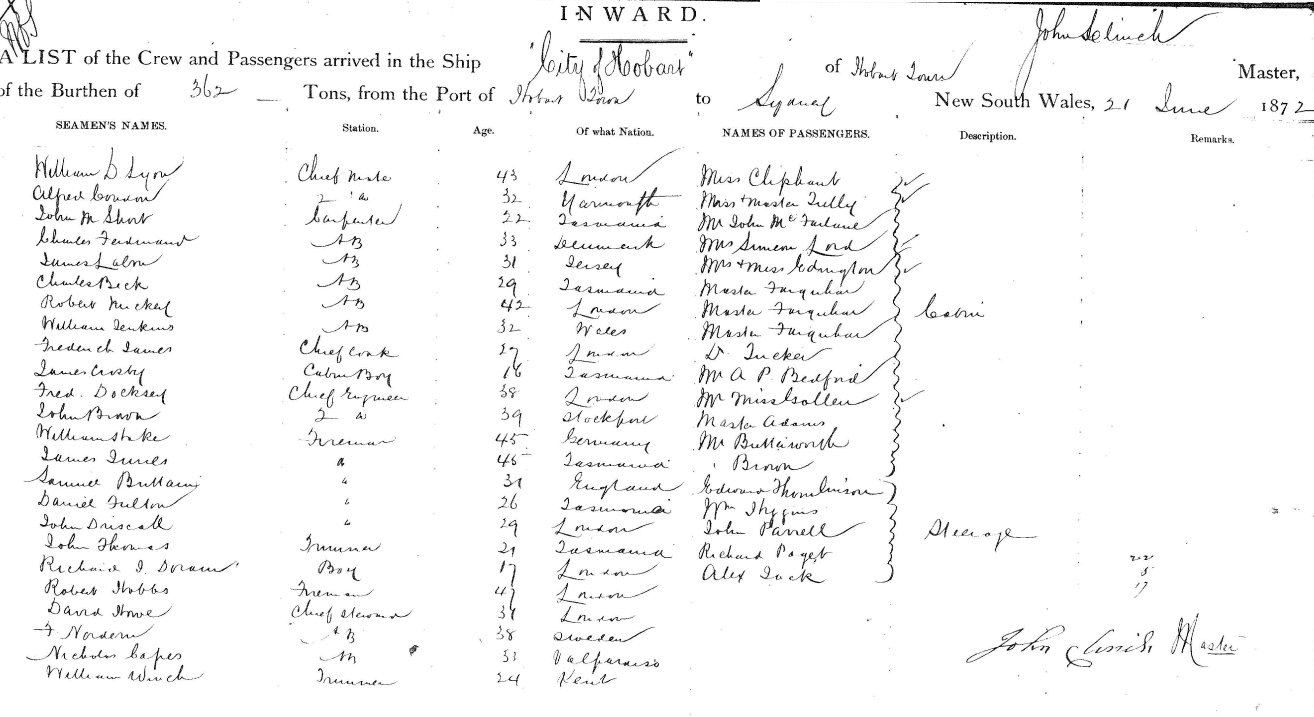 INWARD.
John Clinch
A LIST of the Crew and Passengers arrived in the Ship "City of Hobart" of Hobart Town Master,
of the Burthen of 362 Tons, from the Port of Hobart Town to Sydney New South Wales, 21 June 1872
SEAMEN'S NAMES. Station. Age. Of what Nation. NAMES OF PASSENGERS. Description. Remarks.
William D Lyon Chief Mate 43 London Miss Cliphant
Alfred Condon 2 " 32 Yarmouth Miss + Master Tully
John M Short Carpenter 22 Tasmania Mr John McFarlane
Charles Ferdinand AB 33 Denmark Mrs Simeon Lord
James AB 31 Jersey Mrs + Miss Edrington
Charles Beck AB 29 Tasmania Master Farquhar
Robert AB 42 London Master Farquhar Cabin
William Jenkins AB 32 Wales Master Farquhar
Frederick James Chief Cook 27 London Dr Tucker
James Crosby Cabin Boy 16 Tasmania Mr A P Bedford
Fred. Docksey Chief Engineer 38 London Mr Miss
John Brown 2 " 39 Stockport Master Adams
William Stake Fireman 45 Germany Mr Butterworth
James Innes " 45 Tasmania " Brown
Samuel Buttain " 31 England Edward Thomlinson
Daniel Fulton " 26 Tasmania Wm Higgins
John Driscoll " 29 London John Parrell Steerage
John Thomas Trimmer 21 Tasmania Richard Paget 22
Richard I. Doram Boy 17 London Alex Tuck 5
Robert Hobbs Fireman 47 London 17
David Howe Chief Steward 31 London
F Nordern AB 38 Sweden John Clinch Master
Nicholas Capes AB 33 Valparaiso
William Winch Trimmer 24 Kent